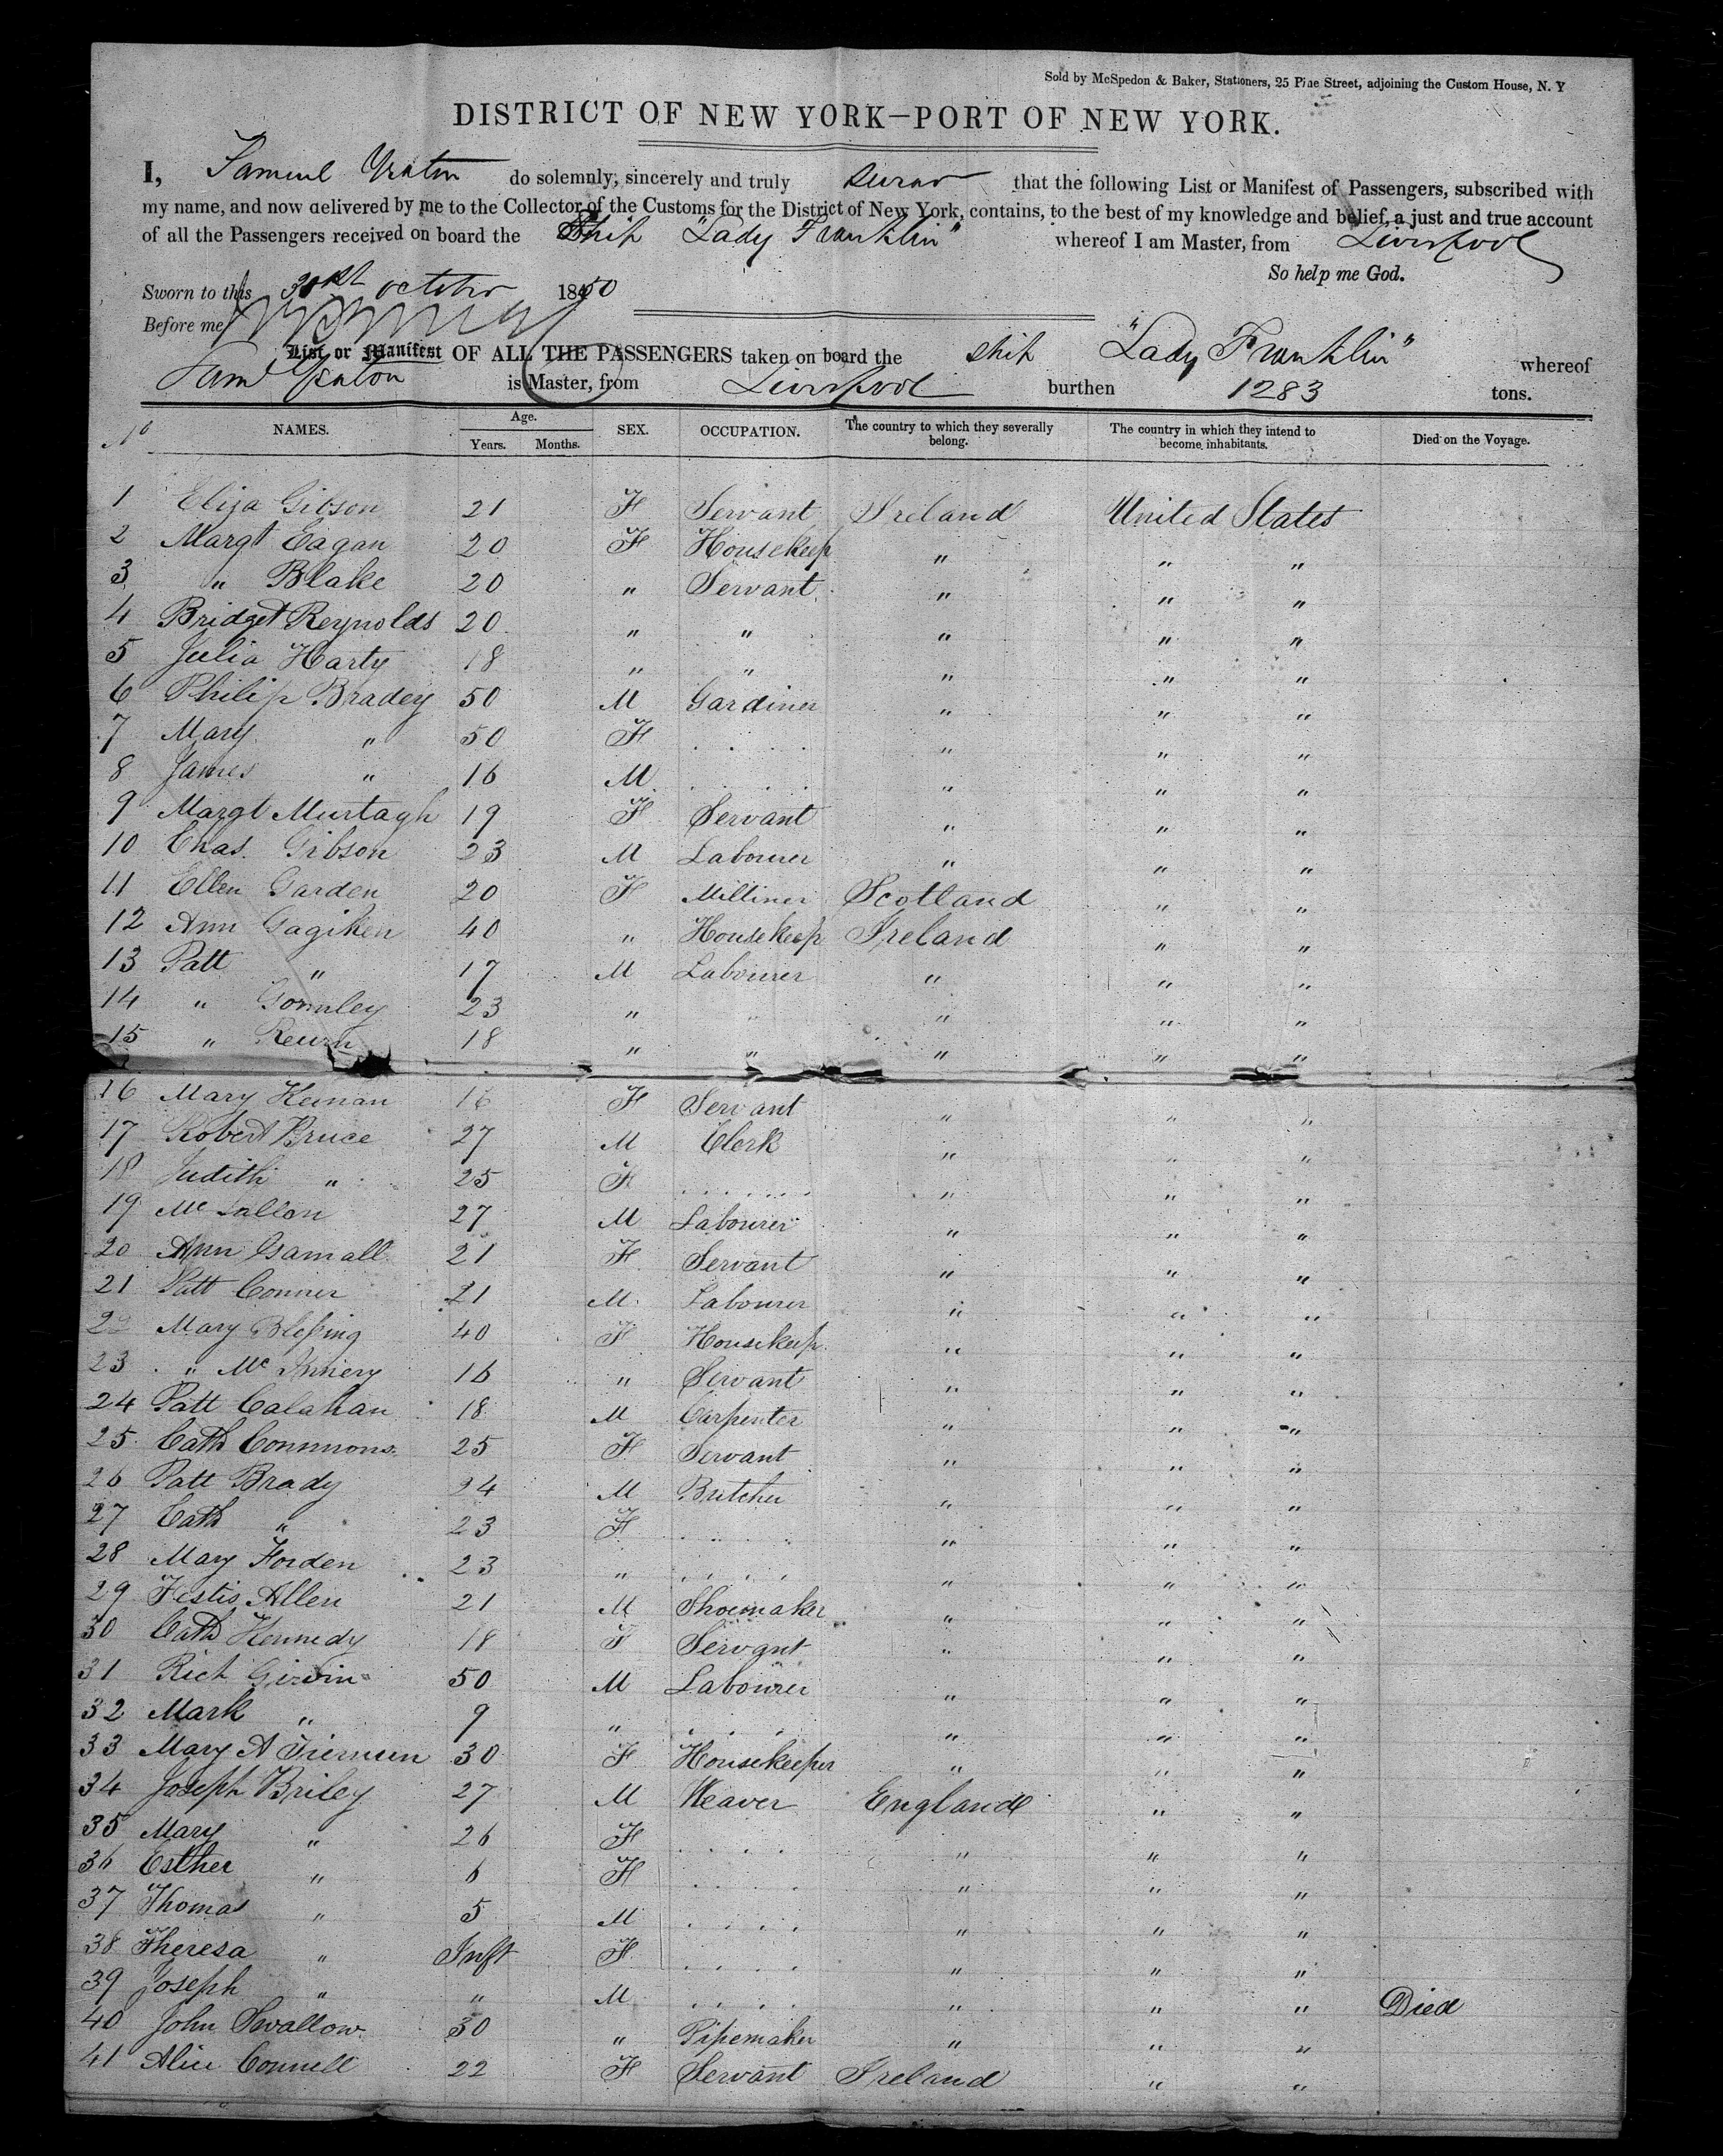 Sold by McSpedon & Baker, Stationers, 25 Pine Street, adjoining the Custom House, N. Y
DISTRICT OF NEW YORK—PORT OF NEW YORK.
I, Samuel Yeaton do solemnly, sincerely and truly swear that the following List or Manifest of Passengers, subscribed with
my name, and now delivered by me to the Collector of the Customs for the District of New York, contains, to the best of my knowledge and belief, a just and true account
of all the Passengers received on board the Ship "Lady Franklin" whereof I am Master, from Liverpool
So help me God.
Sworn to this 31st october 1850
Before me
List or Manifest OF ALL THE PASSENGERS taken on board the ship "Lady Franklin" whereof
Saml Yeaton is Master, from Liverpool burthen 1283 tons.
No NAMES. Age. Years. Months. SEX. OCCUPATION. The country to which they severally belong. The country in which they intend to become inhabitants. Died on the Voyage.
1 Eliza Gibson 21 F Servant Ireland United States
2 Margt Eagan 20 F Housekeep " " "
3 " Blake 20 " Servant " " "
4 Bridget Reynolds 20 " " " " "
5 Julia Harty 18 " " " " "
6 Philip Bradey 50 M Gardiner " " "
7 Mary " 50 F . . . . " " "
8 James " 16 M . . . . . " " "
9 Margt Murtagh 19 F Servant " " "
10 Chas. Gibson 23 M Labourer " " "
11 Ellen Garden 20 F Milliner Scotland " "
12 Ann Gagiken 40 " Housekeep Ireland " "
13 Patt " 17 M Labourer " " "
14 " Gormley 23 " " " " "
15 " 18 " " " " "
16 Mary Keenan 16 F Servant " " "
17 Robert Bruce 27 M Clerk " " "
18 Judith " 25 F . . . . . . . " " "
19 Mc 27 M Labourer " " "
20 Ann 21 F Servant " " "
21 Patt Conner 21 M Labourer " " "
22 Mary Blessing 40 F Housekeep. " " "
23 " Mc 16 " Servant " " "
24 Patt Calahan 18 M Carpenter " " "
25 Cath Commons. 25 F Servant " " "
26 Patt Brady 24 M Butcher " " "
27 Cath " 23 F . . . . " " "
28 Mary Forden 23 " . . . . " " "
29 Festis Allen 21 M Shoemaker " " "
30 Cath Kennedy 18 F Servant " " "
31 Rich Girvin 50 M Labourer " " "
32 Mark " 9 " . . . . " " "
33 Mary A Tiernan 30 F Housekeeper " " "
34 Joseph Briley 27 M Weaver England " "
35 Mary " 26 F . . . . " " "
36 Esther " 6 F . . . . " " "
37 Thomas " 5 M . . . . " " "
38 Theresa " Inft F . . . . " " "
39 Joseph " " M . . . . " " " Died
40 John Swallow 30 " Pipemaker " " "
41 Alice Connell 22 F Servant Ireland " "